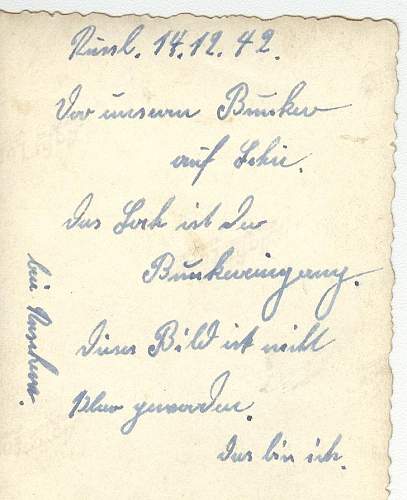 Russl. 14.12.42.
Vor unserm Bunker
auf Schi.
das Loch ist der
Bunkereingang.
dieses Bild ist nicht
klar geworden.
das bin ich.
bei